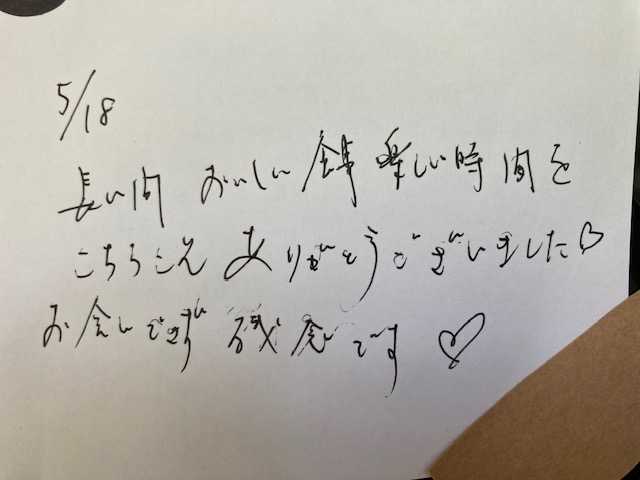 5/18
長い間 おいしい 楽しい時間を
こちらこそ ありがとうございました♡
お会いできず 残念です ♡